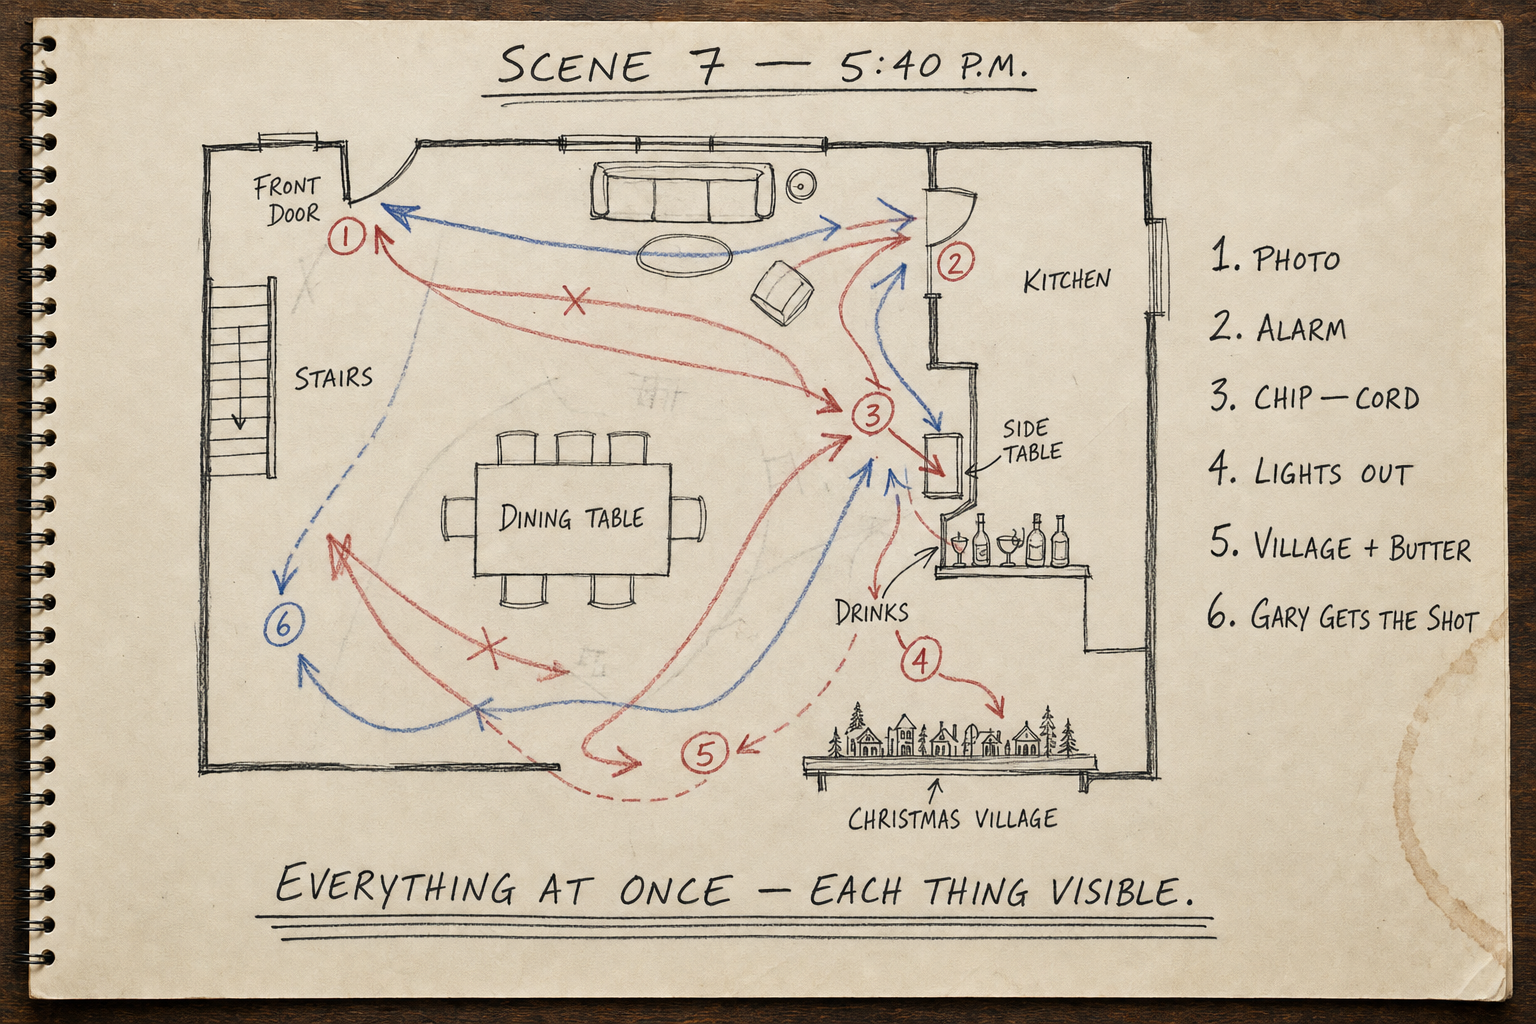 SCENE 7 — 5:40 P.M.
FRONT
DOOR
1
2
KITCHEN
STAIRS
3
SIDE
TABLE
DINING TABLE
6
DRINKS
4
5
CHRISTMAS VILLAGE
1. PHOTO
2. ALARM
3. CHIP — CORD
4. LIGHTS OUT
5. VILLAGE + BUTTER
6. GARY GETS THE SHOT
EVERYTHING AT ONCE — EACH THING VISIBLE.